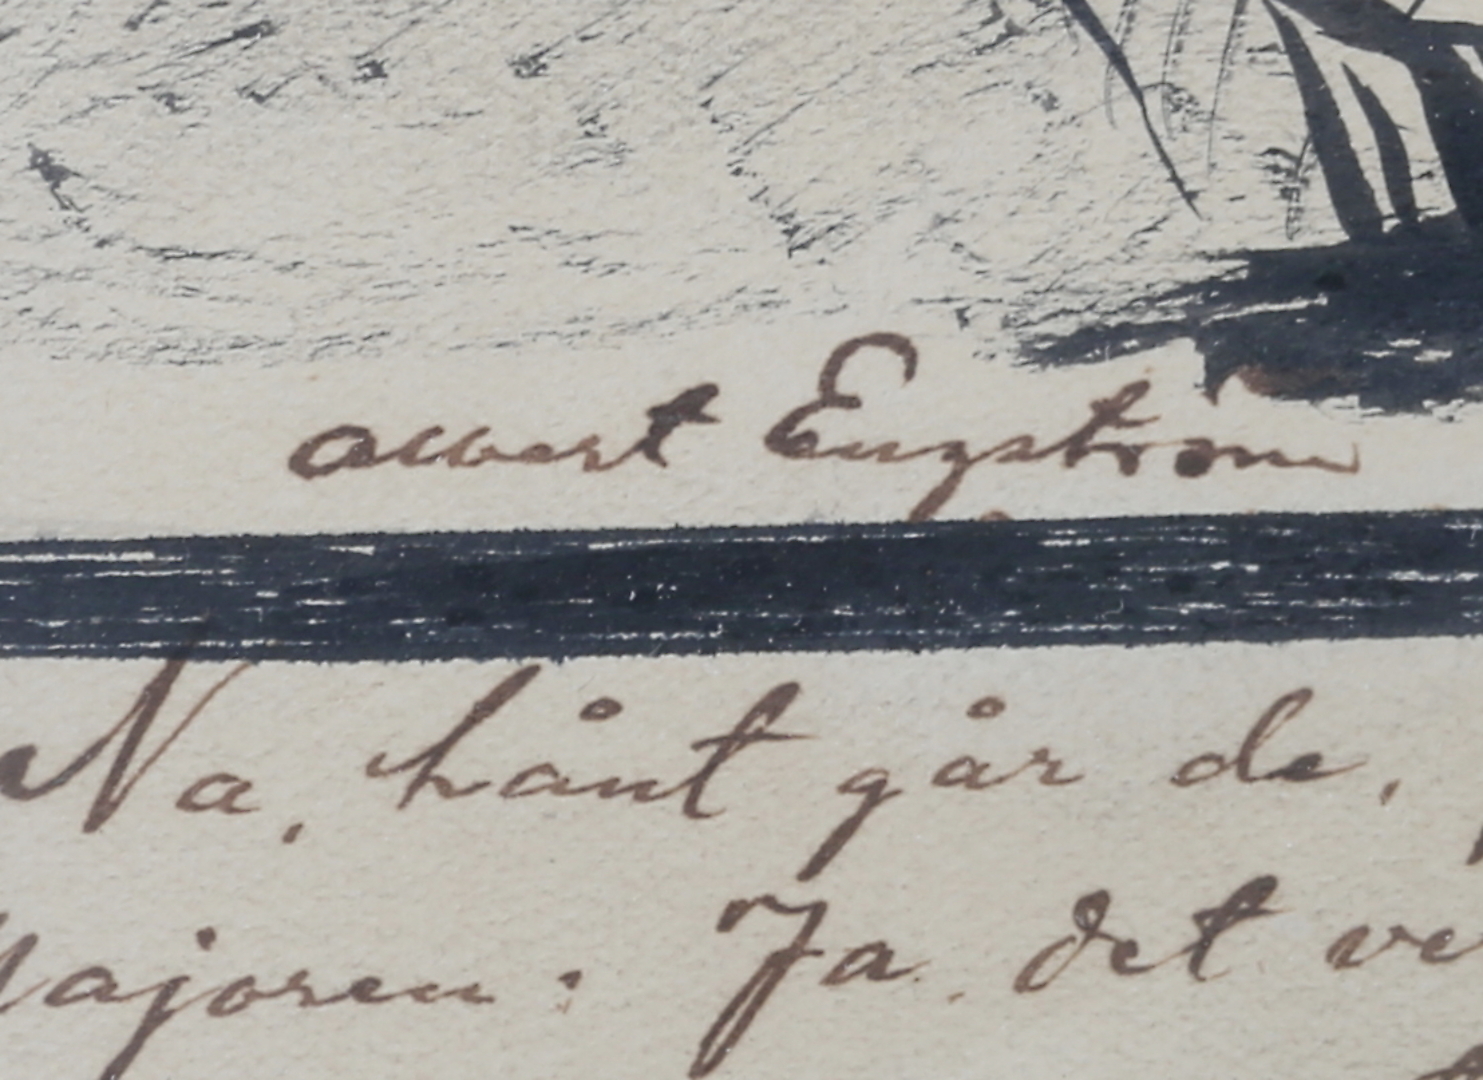 Albert Engström
Na, hånt går de,
Majoren: Ja det ve